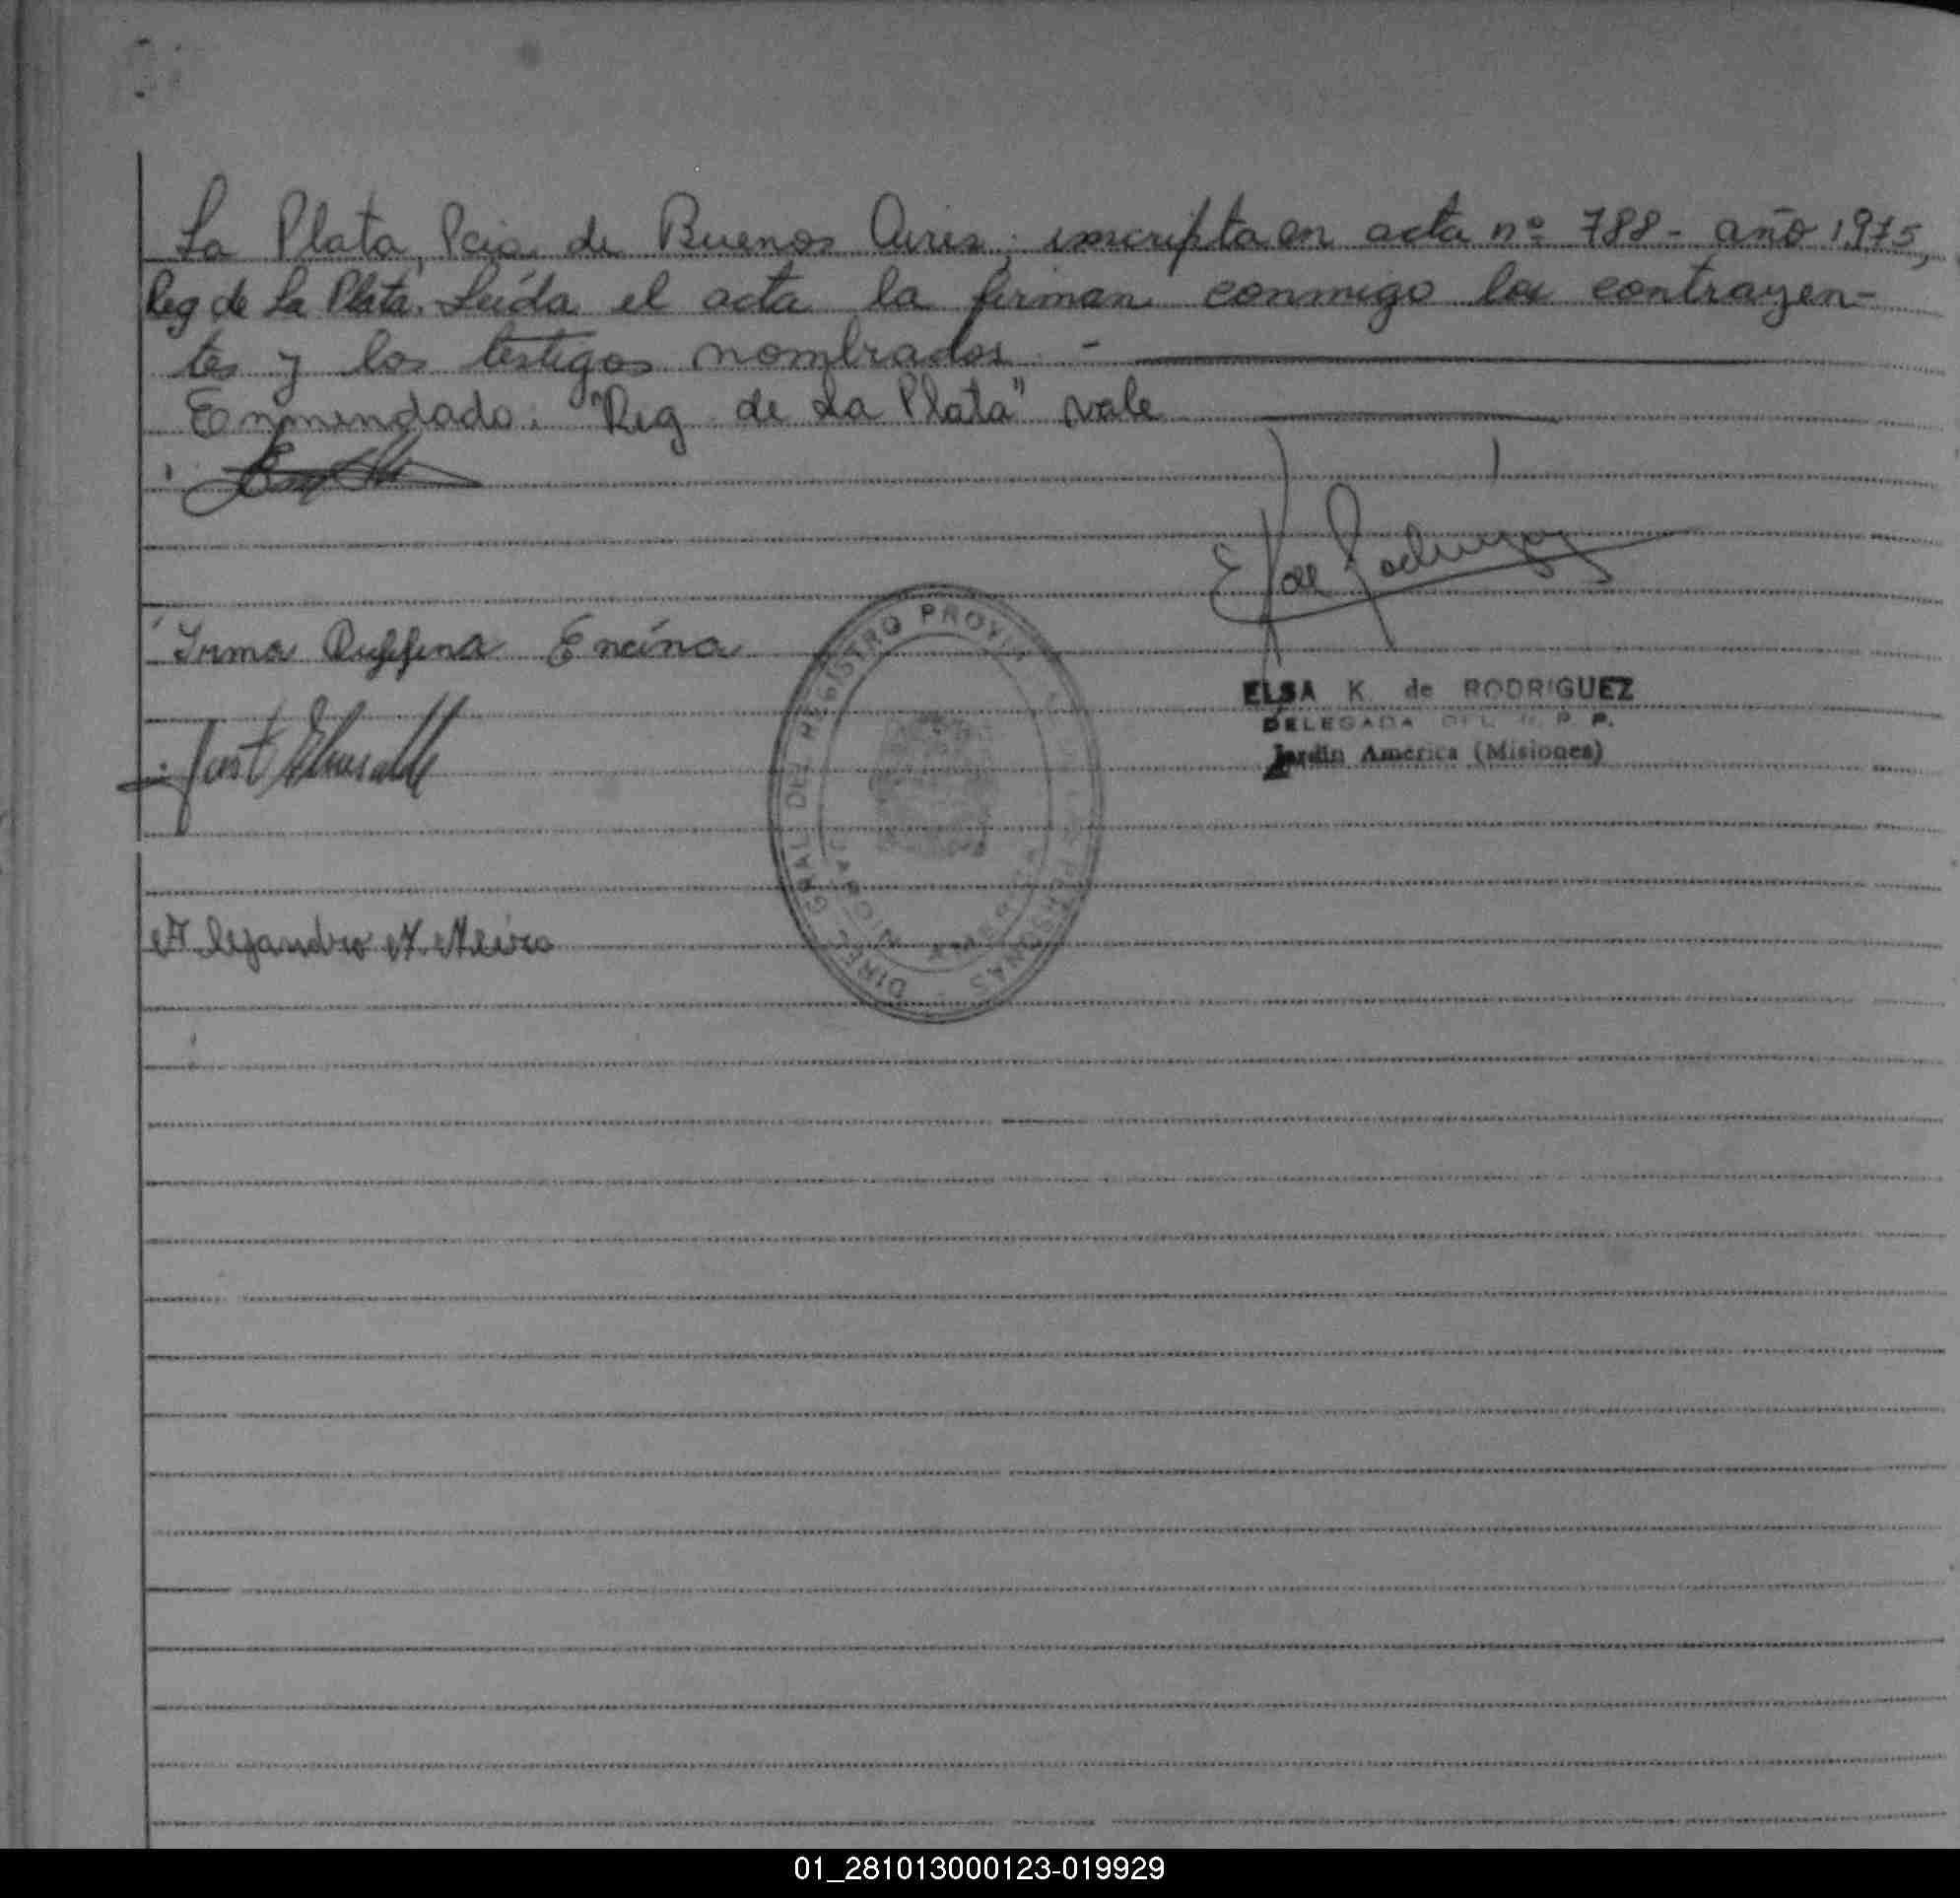 La Plata, Pcia. de Buenos Aires, inscripta en acta nº 788 - año 1975,
Reg de La Plata. Leída el acta la firman conmigo los contrayen-
tes y los testigos nombrados. -
Enmendado: "Reg de La Plata" vale
E K de Rodriguez
Irma Ruffina Encina
ELSA K. de RODRIGUEZ
DELEGADA DEL R. P. P.
Jardín América (Misiones)
DIREC. GRAL. DEL REGISTRO PROVIN PERSONAS
Alejandro A. Neira
01_281013000123-019929